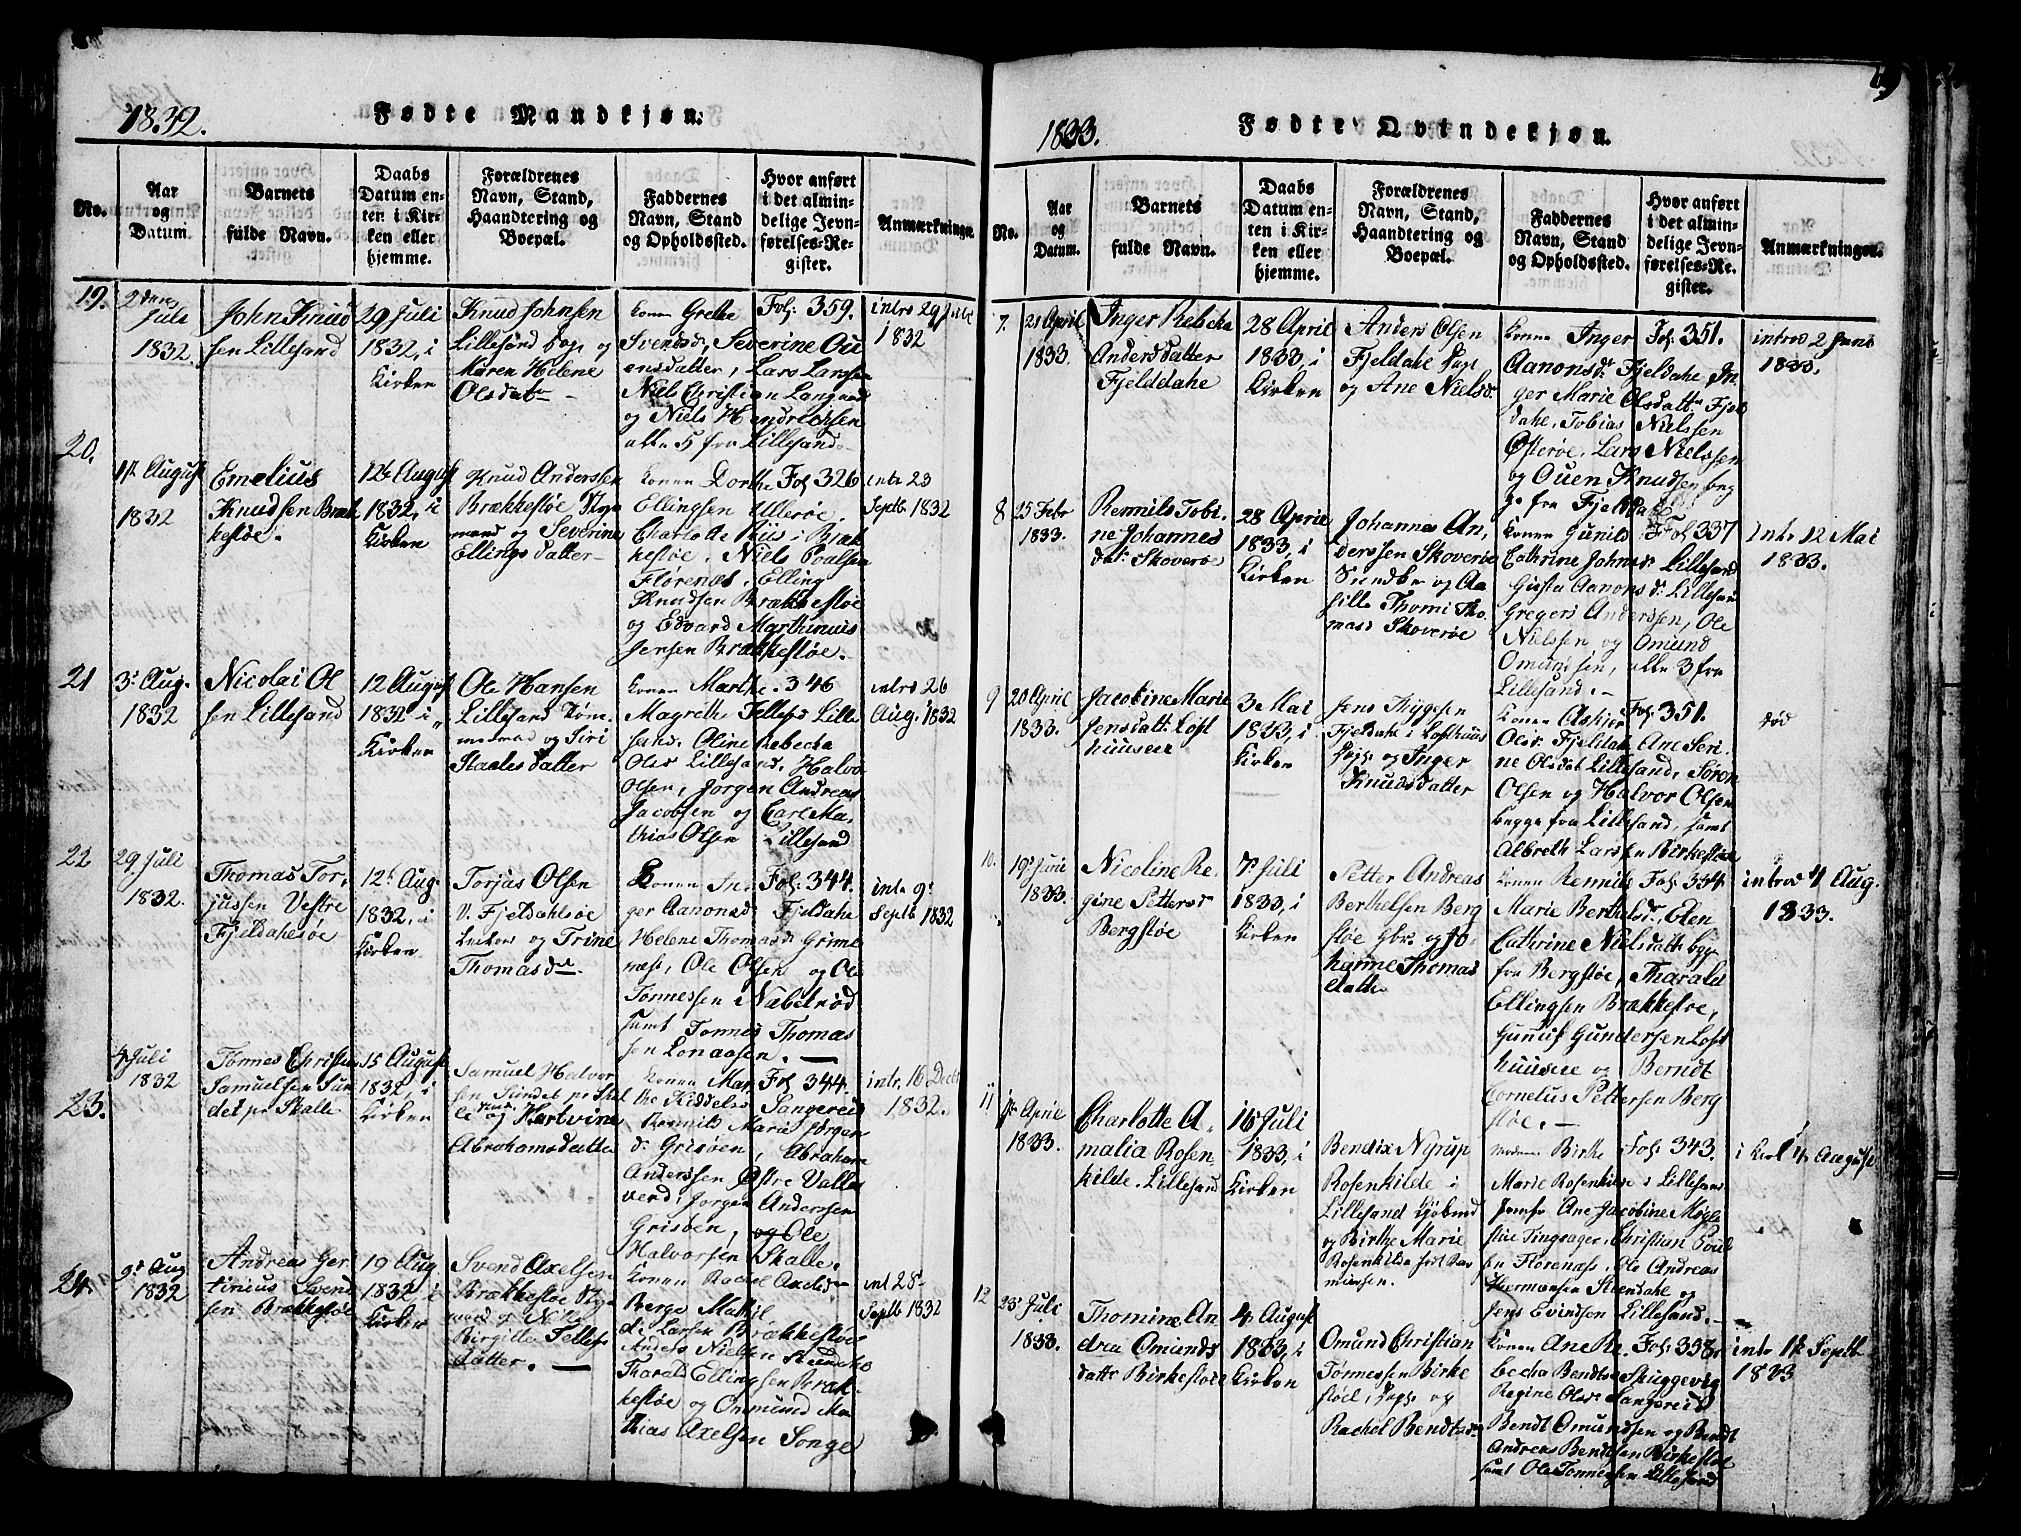 1832.
Fødte Mandkjøn.
No.
Aar
og
Datum.
Barnets
fulde Navn.
Daabs
Datum en-
ten i Kir-
ken eller
hjemme.
Forældrenes
Navn, Stand,
Haandtering og
Boepæl.
Faddernes
Navn, Stand
og Opholdssted.
Hvor anført
i det almin-
delige Jevn-
førelses-Re-
gister.
Anmærkninger.
19.
Juli
1832.
John Knud
sen Lillesand
29 Juli
1832, i
Kirken
Knud Johnsen
Lillesand
og
Maren Helene
Olsdatr
Konen Grethe
Svends Severine Ou
ensdatter, Lars Larssen
Niels Christian Langaas
og Niels Hendrichsen
alle 5 fra Lillesand
Fol: 359.
intrd 29 Juli
1832
20.
1st August
1832
Emelius
Knudsen Bræk
kestøe.
12te August
1832, i
Kirken
Knud Anderssen
Brækkestøe
mand og Severine
Ellings datter
Konen Dorthe
Ellingsen Ullerøe
Charlotte Riis i Bræk
kestøe, Niels Poulsen
Florenæs, Elling
Knudsen Brækkestøe
og Edvard Marthinius
Jensen Brækkestøe.
Fol 326
intr 23
Septb 1832
21
3d Aug.
1832
Nicolai Ol
sen Lillesand
12 August
1832 i
Kirken
Ole Hansen
Lillesand Tøm
mermand og Siri
Staalesdatter
Konen Marthe
Magrethe Jellefsd Lille
sand. Oline Rebecha
Olsd Lillesand, Halvo
Olsen, Jorgen Andreas
Jacobsen og Carl Ma
thias Olsen Lillesand
346
intrd 26
Aug. 1832
22
29 Juli
1832.
Thomas Tor,
jussen Vestre
Fjeldahlsøe
12te Aug.
1832, i
Kirken
Torjus Olsen
V. Fjeldahlsøe
og Trine
Thomasd
Konen In,
ger Aanonsd Fjeldahl
Helene Thomasd: Grim
næs, Ole Olsen og Ole
Tonnessen i Nabelrød
samt Tonnes Thomas
sen Lonaasen.
Fol: 344.
intr 9d
Septb 1832
23.
Juli
1832
Tonnes Christian
Samuelsen Sun
det pr Skalle
15 August
1832 i
Kirken
Samuel Halvor
sen Sundet pr Skal
le og Hartvine
Abrahamsdatter
Konen Mar
the Kiddelsd Sangereid
Rennild Marie Jørgen
d: Grisøen, Abraham
Anderssen Østre Valles
verd, Jorgen Anderssen
Grisøen, og Ole
Halvorsen Skalle.
Fol 344.
intr. 16 Decbr
1832.
24.
9d Aug
1832
Andreas Ger
tinius Svend
sen Brækkestøe
19 Aug.
1832 i
Kirken
Svend Axelsen
Brækkestøe
mand og Nelle
Birgitte Jellefs
datter.
Konen Rachel Axelsd
Berge Mathil
de Larsen Brækkestøe
Anders Nielsen
Tharald Ellingsen Bræk
kestøe og Ommund Ma
thias Axelsen Songe
int 28
Septb 1832
1833.
Fødte Qvindekjøn.
No.
Aar
og
Datum.
Barnets
fulde Navn.
Daabs
Datum en-
ten i Kir-
ken eller
hjemme.
Forældrenes
Navn, Stand,
Haandtering og
Boepæl.
Faddernes
Navn, Stand
og Opholdssted.
Hvor anført
i det almin-
delige Jevn-
førelses-Re-
gister.
Anmærkninger.
7.
21 April
1833.
Inger Rebecka
Andersdatter
Fjelddahl
28 April
1833, i
Kirken
Anders Olsen
Fjeldahl
og Ane Nielsd.
Konen Inger
Aanonsd: Fjeldahl, In
ger Marie Olsdattr Fjel
dahl, Tobias Nielssen
Østerøe, Lars Nielssen
og Ouen Knudsen beg
ge fra Fjeldahl
Fol. 351.
intrd 2 Juni
1833.
8
25 Febr
1833.
Rennild Tobi
ne Johannes
dat: Skoverøe
28 April
1833, i
Kirken
Johannes An,
derssen Skoverøe
og Aa
sille Thomi Tho
masd Skoverøe
Konen Gunild
Cathrine Johnsd Lillesand
Gusta Aanonsd: Lillesand
Gregers Anderssen, Ole
Nielssen og Omund
Omundsen, alle 3 fra
Lillesand.
Fol 337
Intr 12 Mai
1833.
9
20 April
1833.
Jacobine Marie
Jensdatt: Loft
huusene
3 Mai
1833, i
Kirken
Jens Thygesen
Fjeldahl i Lofthuus
og Inger
Knudsdatter
Konen Askjer
Olsd: Fjeldahl, Ane Seri
ne Olsdat Lillesand, Søren
Olsen og Halvor Olsen
begge fra Lillesand, samt
Albreth Larsen Birkestøe
Fol: 351.
død
10.
19d Juni
1833.
Nicoline Re,
gine Pettersd
Bergstøe
7d Juli
1833, i
Kirken
Petter Andreas
Berthelsen Berg
støe Gbr. og Jo
hanne Thomas
datter
Konen Rennild
Marie Berthelsd:, Elen
Cathrine Nielsdatt: beg
fra Bergstøe, Tharald
Ellingsen Brækkestøe,
Gunuf Gundersen Loft
huusene og Berndt
Cornelius Pettersen Berg
støe.
Fol. 334.
intrd 4 Aug.
1833.
11
April
1833.
Charlotte A-
malia Rosen
kilde. Lillesand
16 Juli
1833, i
Kirken
Bendix Nyrup
Rosenkilde i
Lillesand Kjøbmd
og Birthe Marie
Rosenkilde født
Birthe
Marie Rosenkilde i Lillesand
Jomfr Ane Jacobine Møgle
stue Tingsager, Christian Poul
sen Florenæss, Ole Andreas
Hermansen Steendahl og
Jens Evindsen Lillesand.
Fol: 343.
i Kirk 4 August
12
23d Juli
1833.
Thomine An
drea Omunds
datter Birkestøe
4 August
1833, i
Kirken
Omund Christian
Tønnessen Birke
støe, og
Rachel Bendtsd
Konen Ane Re,
becha Bendtsd Skuggevig
Regine Olsd: Sangereid
Bendt Omundsen og Bendt
Andreas Bendtsen Birkestøe
samt Ole Tonnessen Lillesand
Fol: 338
intr 1st Septb
1833